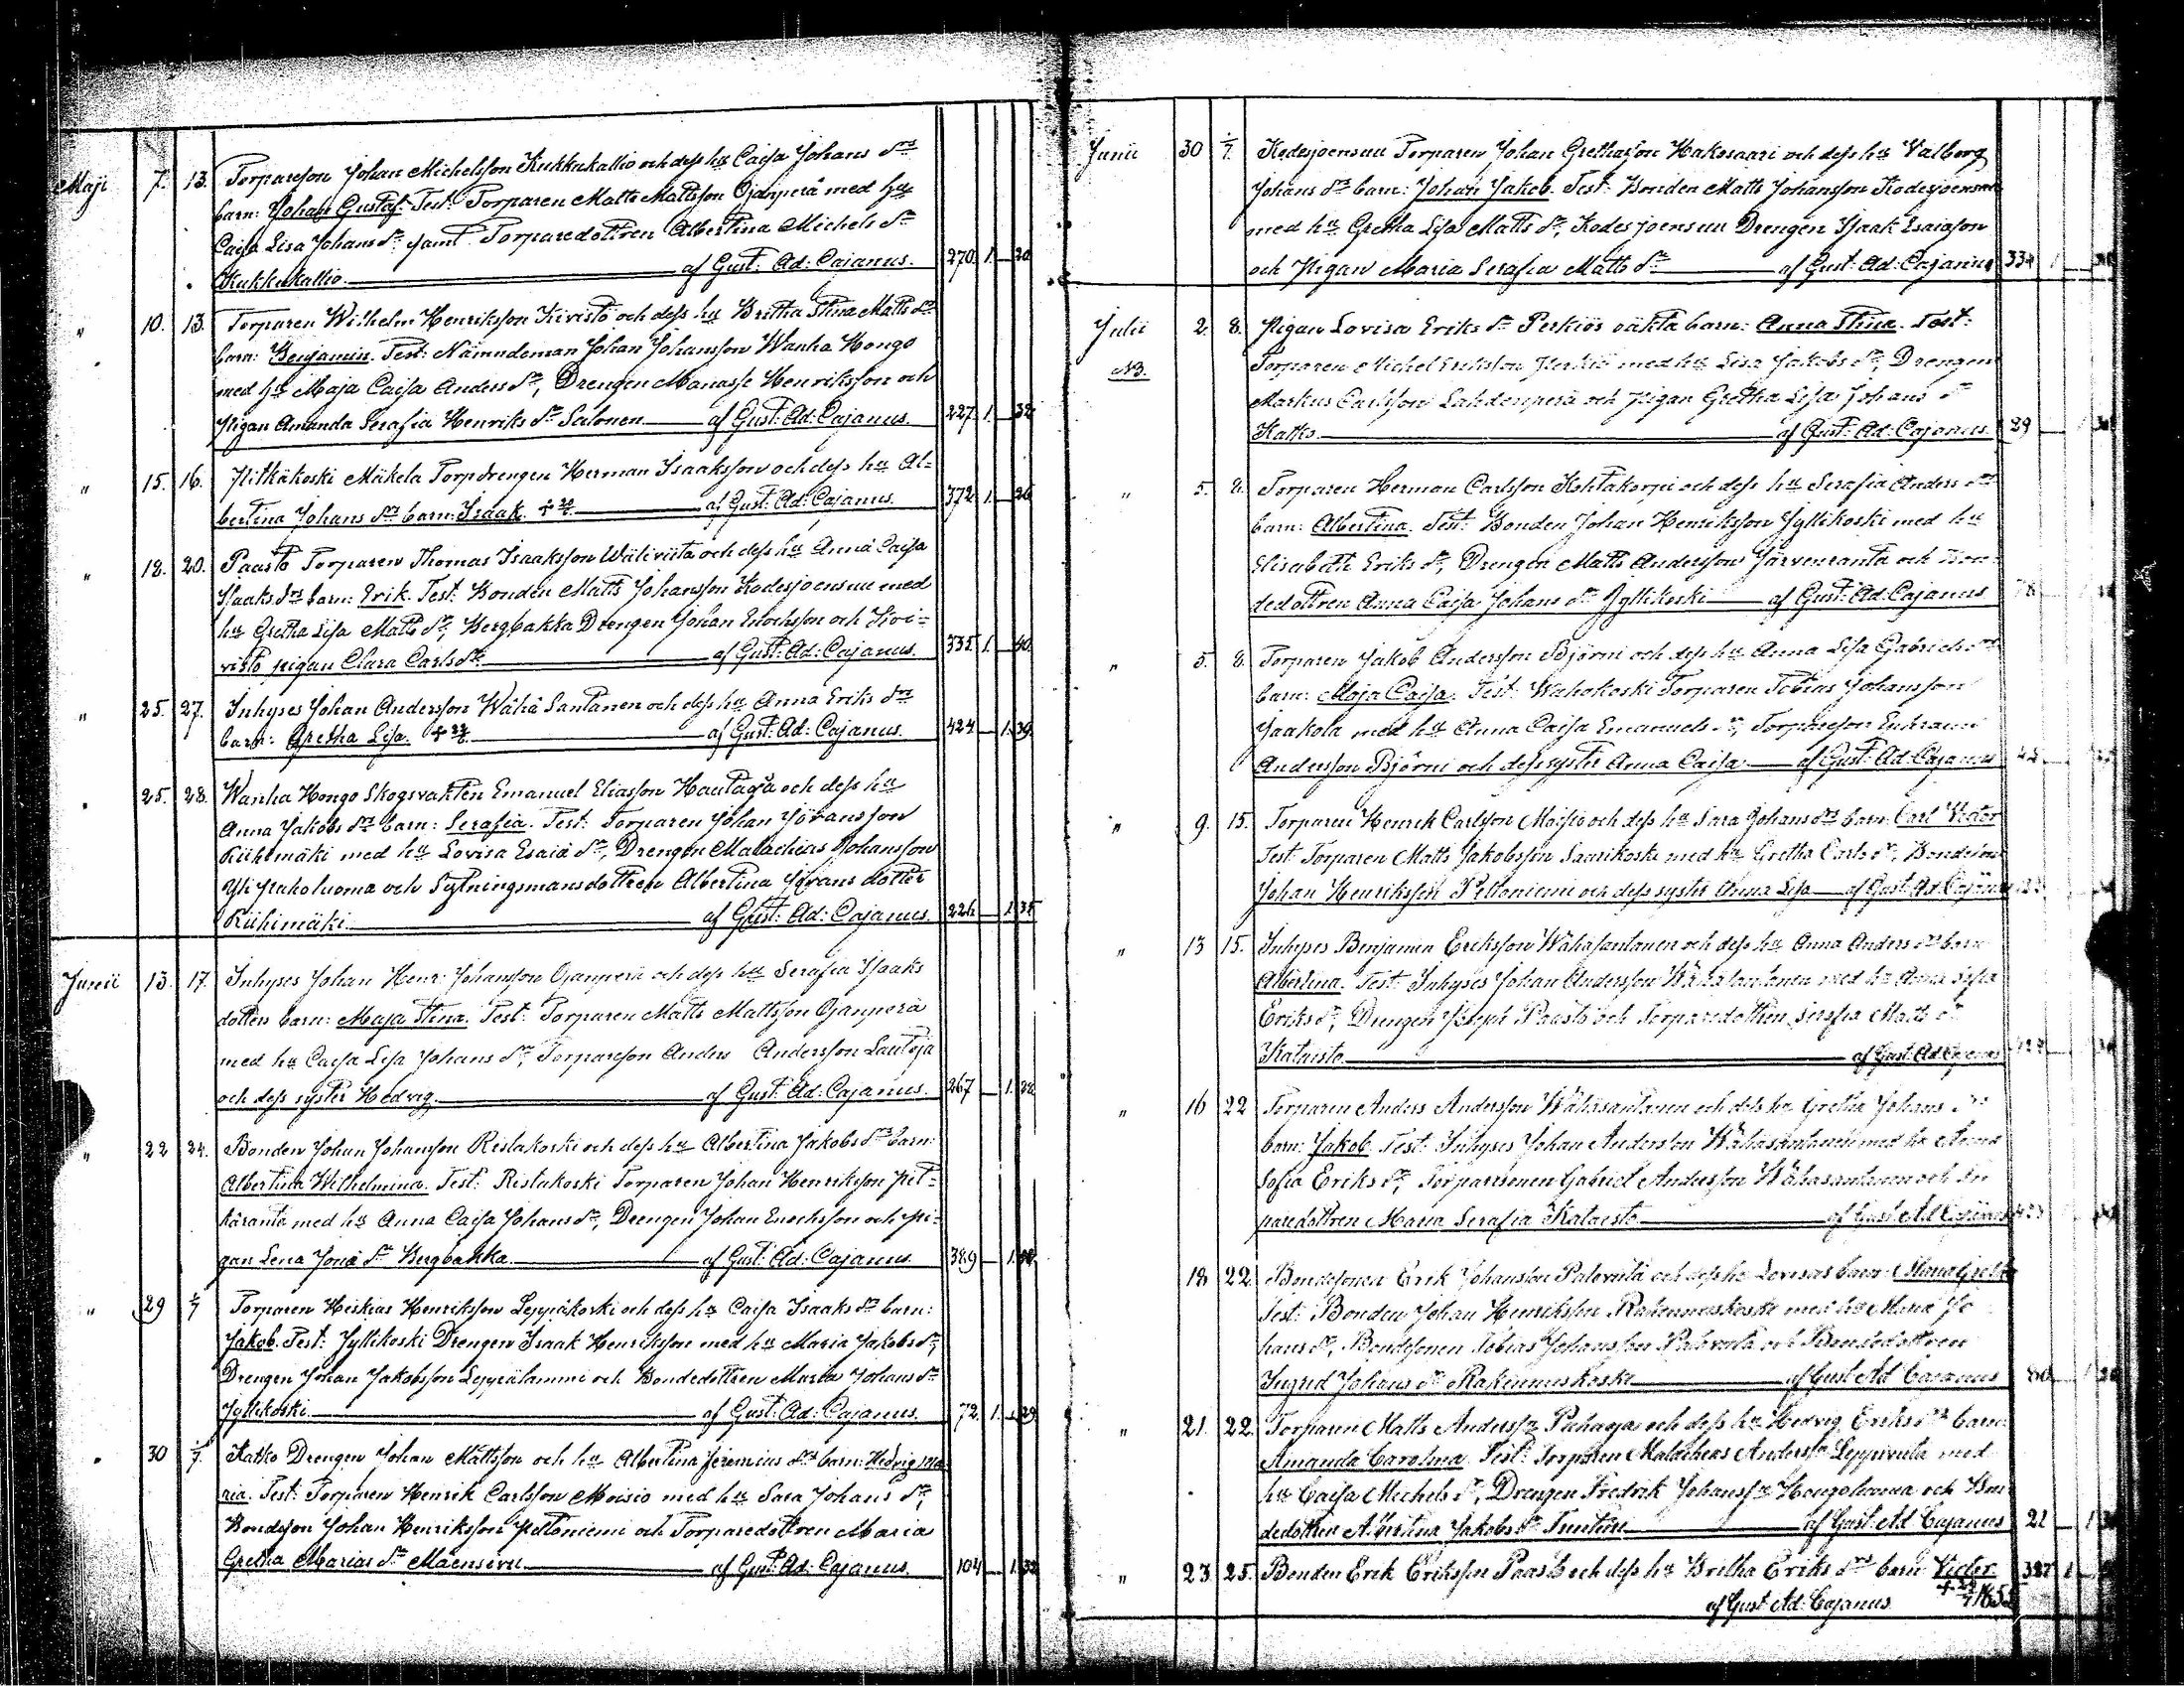 Maji 7. 13. Torpareson Johan Michelsson Kukkukallio och dess hu Caisa Johans drs
barn: Johan Gustaf. Test: Torparen Matts Mattsson Ojanperä med hu
Caisa Lisa Johans dr samt Torparedottren Albertina Michels dr
Kukkukallio. af Gust: Ad: Cajanus. 270. 1. 20
" 10. 13. Torparen Wilhelm Henriksson Kivistö och dess hu Britha Stina Matts drs
barn: Benjamin. Test: Nämndeman Johan Johansson Wanha Hongo
med hu Maja Caisa Anders dr, Drengen Manasse Henriksson och
pigan Amanda Serafia Henriks dr Salonen af Gust: Ad: Cajanus. 227. 1. 32
" 15. 16. Pitkäkoski Mäkelä Torpdrengen Herman Isaaksson och dess hu Al=
bertina Johans drs barn: Isaak. af Gust: Ad: Cajanus. 372. 1. 26
" 18. 20. Paasto Torparen Thomas Isaaksson Wäliviita och dess hu Anna Caisa
Isaaks drs barn: Erik. Test: Bonden Matts Johansson Kodesjoensuu med
hu Gretha Lisa Matts dr, Bergbakka Drengen Johan Enochsson och Kivi=
vistö pigan Clara Carls dr af Gust: Ad: Cajanus. 335. 1. 40.
" 25. 27. Inhyses Johan Andersson Wähä Santanen och dess hu Anna Eriks drs
barn: Gretha Lisa. af Gust: Ad: Cajanus. 424 1. 39.
25. 28. Wanha Hongo Skogsvakten Emanuel Eliasson Hautaoja och dess hu
Anna Jakobs drs barn: Serafia. Test: Torparen Johan Jöransson
Riihimäki med hu Lovisa Esaiä dr, Drengen Malachias Johansson
Yli Pukoluoma och Sytningsmansdottren Albertina Jörans dotter
Riihimäki. af Gust: Ad: Cajanus. 226 1. 35
Junii 13. 17. Inhyses Johan Henr: Johansson Ojanperä och dess hu Serafia Isaaks
dotters barn: Maja Stina. Test: Torparen Matts Mattsson Ojanperä
med hu Caisa Lisa Johans dr, Torpareson Anders Andersson Lautoja
och dess syster Hedvig. af Gust: Ad: Cajanus. 267 1. 22.
" 22 24. Bonden Johan Johansson Ristakoski och dess hu Albertina Jakobs drs barn:
Albertina Wilhelmina. Test: Ristakoski Torparen Johan Henriksson Pit=
käranta med hu Anna Caisa Johans dr, Drengen Johan Enochsson och pi=
gan Lena Jonä dr Bergbakka. af Gust: Ad: Cajanus. 389 1.
" 29 1/7 Torparen Heskias Henriksson Leppäkoski och dess hu Caisa Isaaks drs barn:
Jakob. Test: Jyllikoski Drengen Isaak Henriksson med hu Maria Jakobs dr,
Drengen Johan Jakobsson Leppälammi och Bondedottren Maria Johans dr
Jyllikoski. af Gust: Ad: Cajanus. 72. 1. 29.
30 1/7 Katko Drengen Johan Mattsson och hu Albertina Jeremias drs barn: Hedvig Ma
ria. Test: Torparen Henrik Carlsson Moisio med hu Sara Johans dr,
Bondeson Johan Henriksson Peltoniemi och Torparedottren Maria
Gretha Marias dr Mäensivu af Gust: Ad: Cajanus. 104 1. 32
Junii 30 1/7. Kodesjoensuu Torparen Johan Grethasson Hakosaari och dess hu Valborg
Johans drs barn: Johan Jakob. Test: Bonden Matts Johansson Kodesjoensuu
med hu Gretha Lisa Matts dr, Kodesjoensuu Drengen Isaak Esaiasson
och Pigan Maria Serafia Matts dr af Gust: Ad: Cajanus 334 1
Julii 2. 8. Pigan Lovisa Eriks dr Perkiös oäkta barn: Anna Stina. Test:
NB. Torparen Michel Eriksson Perkiö med hu Lisa Jakobs dr, Drengen
Markus Carlsson Lahdenperä och pigan Gretha Lisa Johans dr
Katko. af Gust: Ad: Cajanus. 29
" 5. 8. Torparen Herman Carlsson Kohtakorpi och dess hu Serafia Anders drs
barn: Albertina. Test: Bonden Johan Henriksson Jyllikoski med hu
Elisabeth Eriks dr, Drengen Matts Andersson Järvenranta och Bon=
dedottren Anna Caisa Johans dr Jyllikoski af Gust: Ad: Cajanus
" 5. 8. Torparen Jakob Andersson Björni och dess hu Anna Lisa Gabriels drs
barn: Maja Caisa. Test: Wahokoski Torparen Tobias Johansson
Jaakola med hu Anna Caisa Emanuels dr, Torpareson Ephraim
Andersson Björni och dess syster Anna Caisa af Gust: Ad: Cajanus
" 9. 15. Torparen Henrik Carlsson Moisio och dess hu Sara Johans drs barn: Carl Victor
Test: Torparen Matts Jakobsson Saarikoski med hu Gretha Carls dr, Bondeson
Johan Henriksson Peltoniemi och dess syster Anna Lisa af Gust: Ad: Cajanus
" 13 15. Inhyses Benjamin Eriksson Wähäsantanen och dess hu Anna Anders drs barn
Albertina. Test: Inhyses Johan Andersson Wähäsantanen med hu Anna Sofia
Eriks dr, Drengen Joseph Paasto och Torparedottren Serafia Matts dr
Kataisto af Gust: Ad: Cajanus
" 16 22 Torparen Anders Andersson Wähäsantanen och dess hu Gretha Johans drs
barn: Jakob. Test: Inhyses Johan Andersson Wähäsantanen med hu Anna
Sofia Eriks dr, Torparesonen Gabriel Andersson Wähäsantanen och Tor
paredottren Maria Serafia Kataisto af Gust: Ad: Cajanus
18 22. Bondesonen Erik Johansson Paloviita och dess hu Lovisas barn: Maria Gretha
Test: Bonden Johan Henriksson Rakennuskoski med hu Maria Jo
hans dr, Bondesonen Tobias Johansson Paloviita och Bondedottren
Ingrid Johans dr Rakennuskoski af Gust: Ad: Cajanus 80
" 21. 22. Torparen Matts Andersson Pahaoja och dess hu Hedvig Eriks drs barn:
Amanda Carolina. Test: Torparen Malachias Andersson Leppiviita med
hu Caisa Michels dr, Drengen Fredrik Johansson Hongoluoma och Bon
dedottren Albertina Jakobs dr Tuntturi af Gust: Ad: Cajanus 21
" 23 25. Bonden Erik Eriksson Paasto och dess hu Britha Eriks drs barn Victor.
af Gust: Ad: Cajanus. 1855